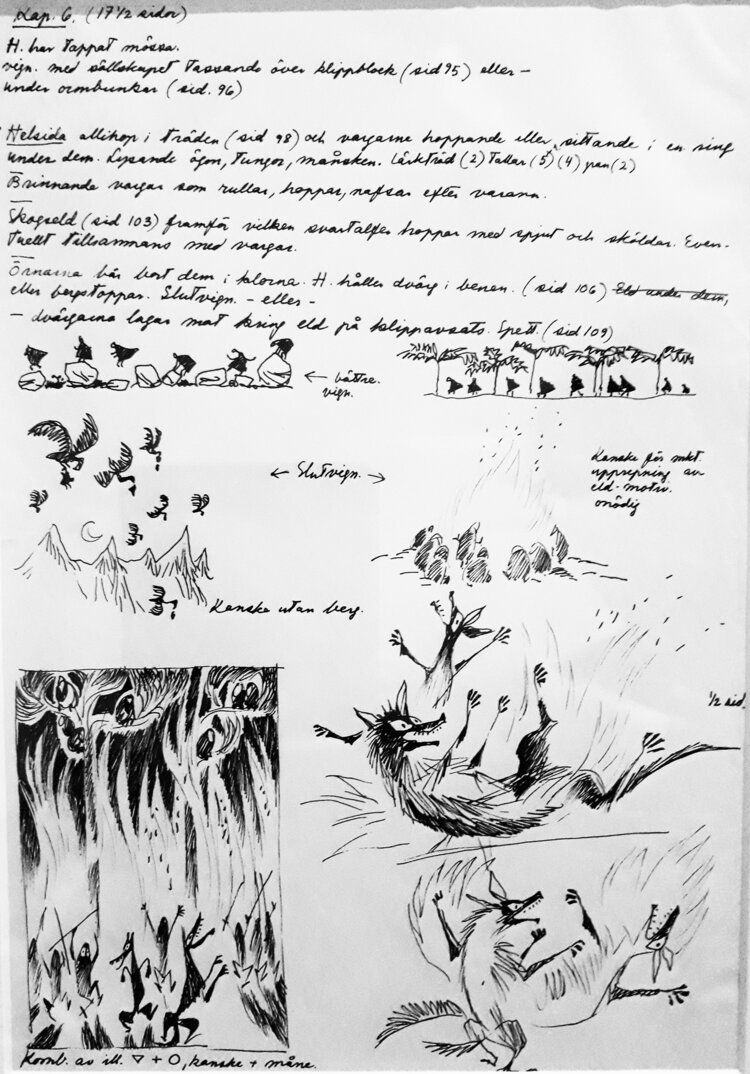 Kap. 6. (17 1/2 sidor)
H. har tappat mössa.
vign. med sällskapet tassande över klippblock (sid 95) eller –
under ormbunkar (sid. 96)
Helsida allihop i träden (sid 98) och vargarne hoppande eller sittande i en ring
under dem. Lysande ögon, tungor, månsken. Lärkträd (2) Tallar (5) (4) gran (2)
Brinnande vargar som rullar, hoppar, nafsar efter varann.
Skogseld (sid 103) framför vilken svartalfer hoppar med spjut och sköldar. Even-
tuellt tillsammans med vargar.
Örnarna bär bort dem i klorna. H. håller dvärg i benen. (sid 106) Eld under dem,
eller bergstoppar. Slutvign. – eller –
– dvärgarna lagar mat kring eld på klippavsats. Spett. (sid 109)
← bättre
vign.
← Slutvign. →
Kanske för mkt
upprepning av
eld-motiv.
onödig
Kanske utan berg.
1/2 sid.
Komb. av ill. ▽ + O, kanske + måne.